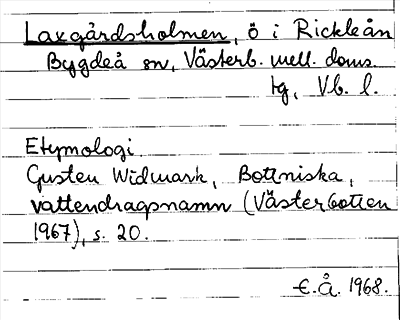 Laxgårdsholmen, ö i Rickleån
Bygdeå sn, Västerb. mell. doms.
tg, Vb. l.
Etymologi
Gusten Widmark, Bottniska,
vattendragsnamn (Västerbotten
1967), s. 20.
E.Å. 1968.